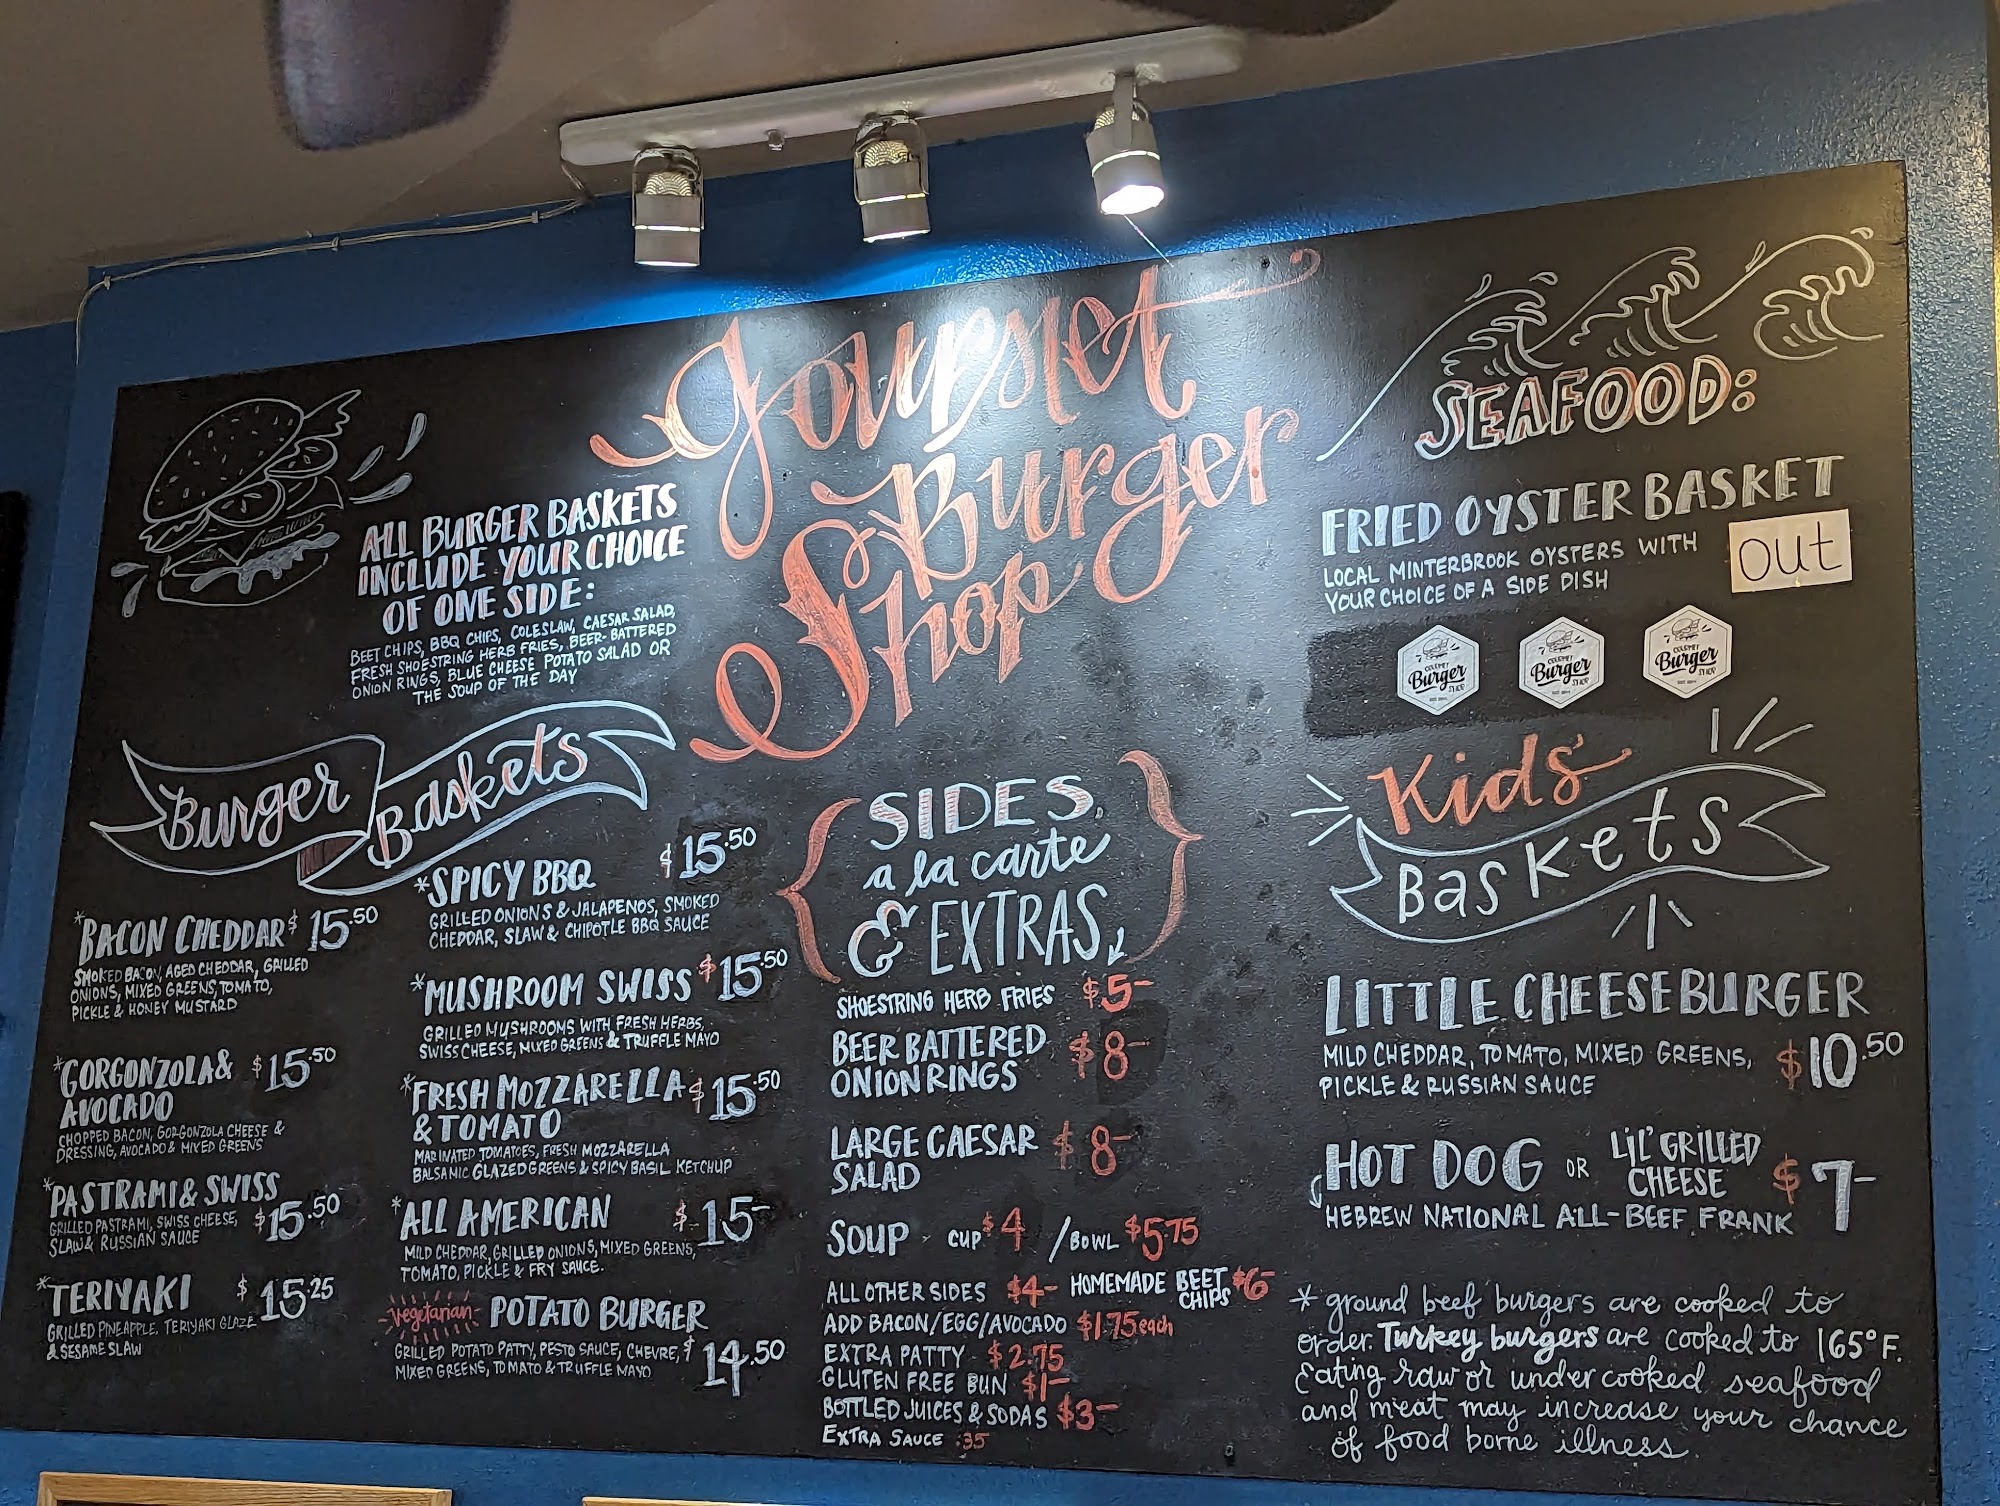 Gourmet
Burger
Shop
ALL BURGER BASKETS
INCLUDE YOUR CHOICE
OF ONE SIDE:
BEET CHIPS, BBQ CHIPS, COLESLAW, CAESAR SALAD,
FRESH SHOESTRING HERB FRIES, BEER-BATTERED
ONION RINGS, BLUE CHEESE POTATO SALAD OR
THE SOUP OF THE DAY
Burger Baskets
*BACON CHEDDAR $15.50
SMOKED BACON, AGED CHEDDAR, GRILLED
ONIONS, MIXED GREENS, TOMATO,
PICKLE & HONEY MUSTARD
*GORGONZOLA & $15.50
AVOCADO
CHOPPED BACON, GORGONZOLA CHEESE &
DRESSING, AVOCADO & MIXED GREENS
*PASTRAMI & SWISS
GRILLED PASTRAMI, SWISS CHEESE, $15.50
SLAW & RUSSIAN SAUCE
*TERIYAKI $15.25
GRILLED PINEAPPLE, TERIYAKI GLAZE
& SESAME SLAW
*SPICY BBQ $15.50
GRILLED ONIONS & JALAPENOS, SMOKED
CHEDDAR, SLAW & CHIPOTLE BBQ SAUCE
*MUSHROOM SWISS $15.50
GRILLED MUSHROOMS WITH FRESH HERBS,
SWISS CHEESE, MIXED GREENS & TRUFFLE MAYO
*FRESH MOZZARELLA $15.50
& TOMATO
MARINATED TOMATOES, FRESH MOZZARELLA
BALSAMIC GLAZED GREENS & SPICY BASIL KETCHUP
*ALL AMERICAN $15-
MILD CHEDDAR, GRILLED ONIONS, MIXED GREENS,
TOMATO, PICKLE & FRY SAUCE.
-Vegetarian- POTATO BURGER
GRILLED POTATO PATTY, PESTO SAUCE, CHEVRE, $14.50
MIXED GREENS, TOMATO & TRUFFLE MAYO
SIDES,
a la carte
& EXTRAS
SHOESTRING HERB FRIES $5-
BEER BATTERED $8-
ONION RINGS
LARGE CAESAR $8-
SALAD
SOUP - CUP $4 / BOWL $5.75
ALL OTHER SIDES $4- HOMEMADE BEET CHIPS $6-
ADD BACON/EGG/AVOCADO $1.75 each
EXTRA PATTY - $2.75
GLUTEN FREE BUN $1-
BOTTLED JUICES & SODAS $3-
EXTRA SAUCE .35
SEAFOOD:
FRIED OYSTER BASKET
LOCAL MINTERBROOK OYSTERS WITH
YOUR CHOICE OF A SIDE DISH
out
GOURMET
Burger
SHOP
GOURMET
Burger
SHOP
GOURMET
Burger
SHOP
Kids'
Baskets
LITTLE CHEESEBURGER
MILD CHEDDAR, TOMATO, MIXED GREENS, $10.50
PICKLE & RUSSIAN SAUCE
HOT DOG OR LIL' GRILLED CHEESE $7-
HEBREW NATIONAL ALL-BEEF FRANK
* ground beef burgers are cooked to
order. Turkey burgers are cooked to 165°F.
Eating raw or undercooked seafood
and meat may increase your chance
of food borne illness.